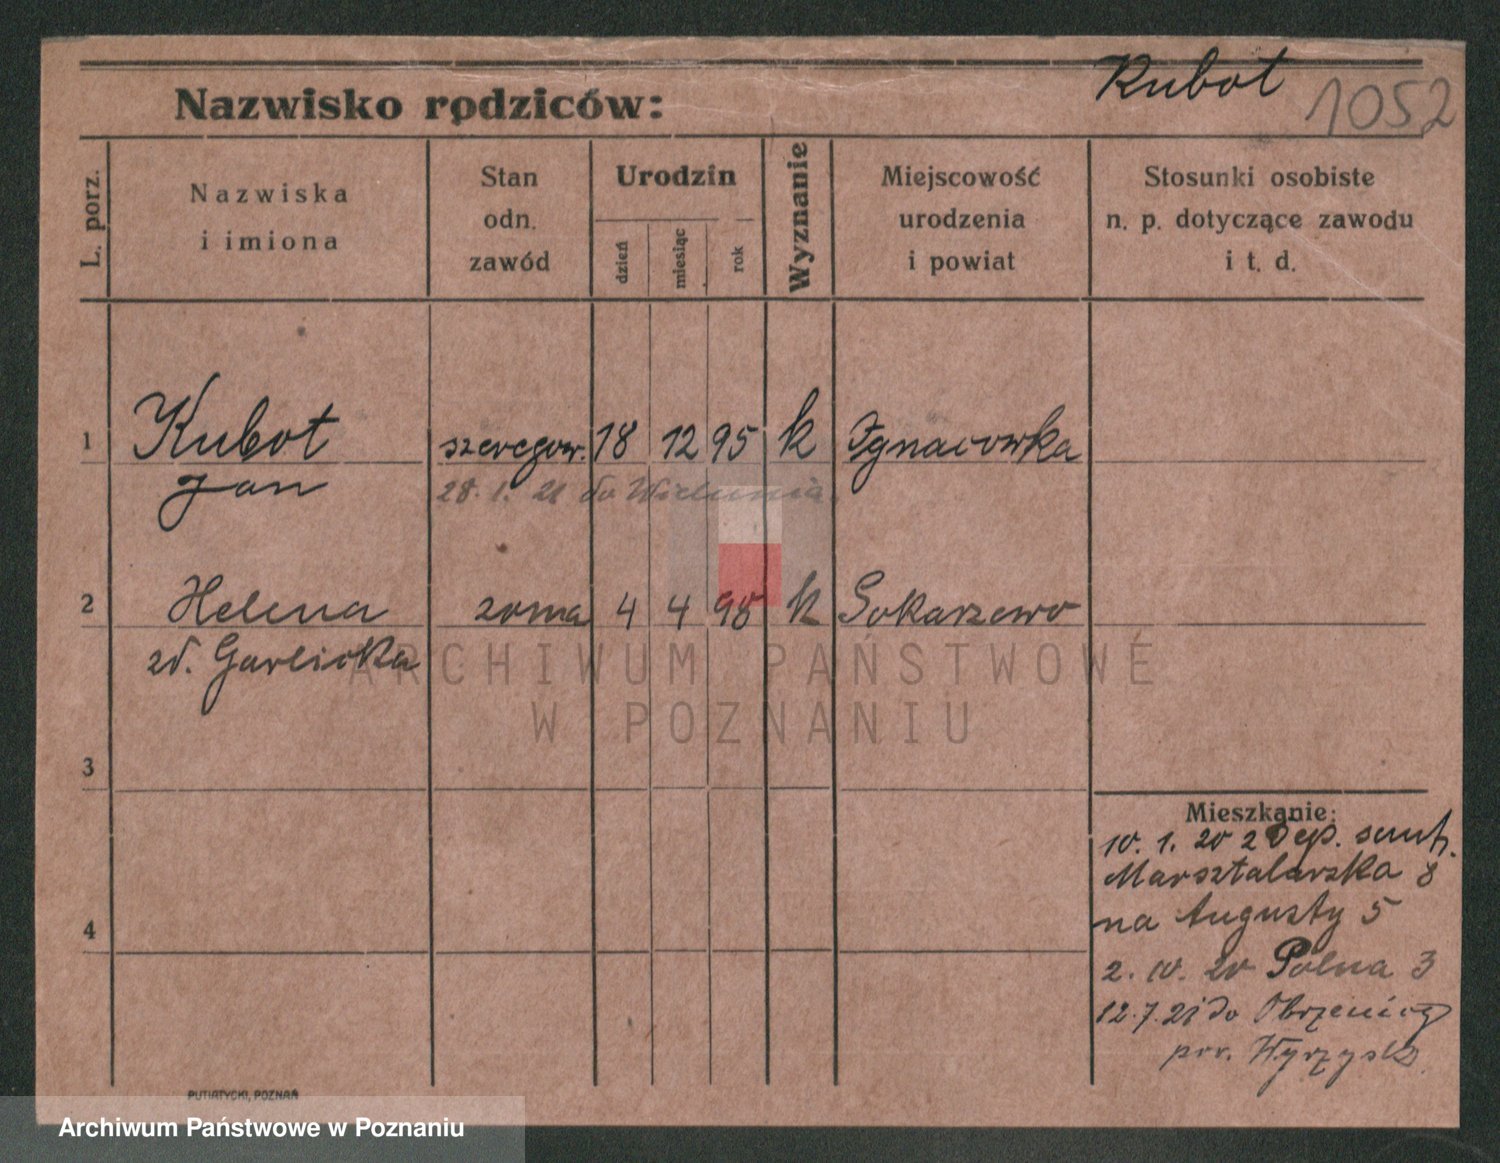 Kubot 1052
Nazwisko rodziców:
L. porz.
Nazwiska
i imiona
Stan
odn.
zawód
Urodzin
dzień
miesiąc
rok
Wyznanie
Miejscowość
urodzenia
i powiat
Stosunki osobiste
n. p. dotyczące zawodu
i t. d.
1 Kubot szeregow. 18 12 95 k Ignacowka
Jan 28. 1. 21 do Wielunia.
2 Helena zona 4 4 98 k Sokarzewo
zd. Garlicka
ARCHIWUM PAŃSTWOWE
W POZNANIU
3
Mieszkanie:
10. 1. 20 2 Dep. sanit.
Marsztalarska 8
4
na Augusty 5
2. 10. 20 Polna 3
12. 7. 21 do
pow. Wyrzysk
PUTIATYCKI, POZNAŃ
Archiwum Państwowe w Poznaniu